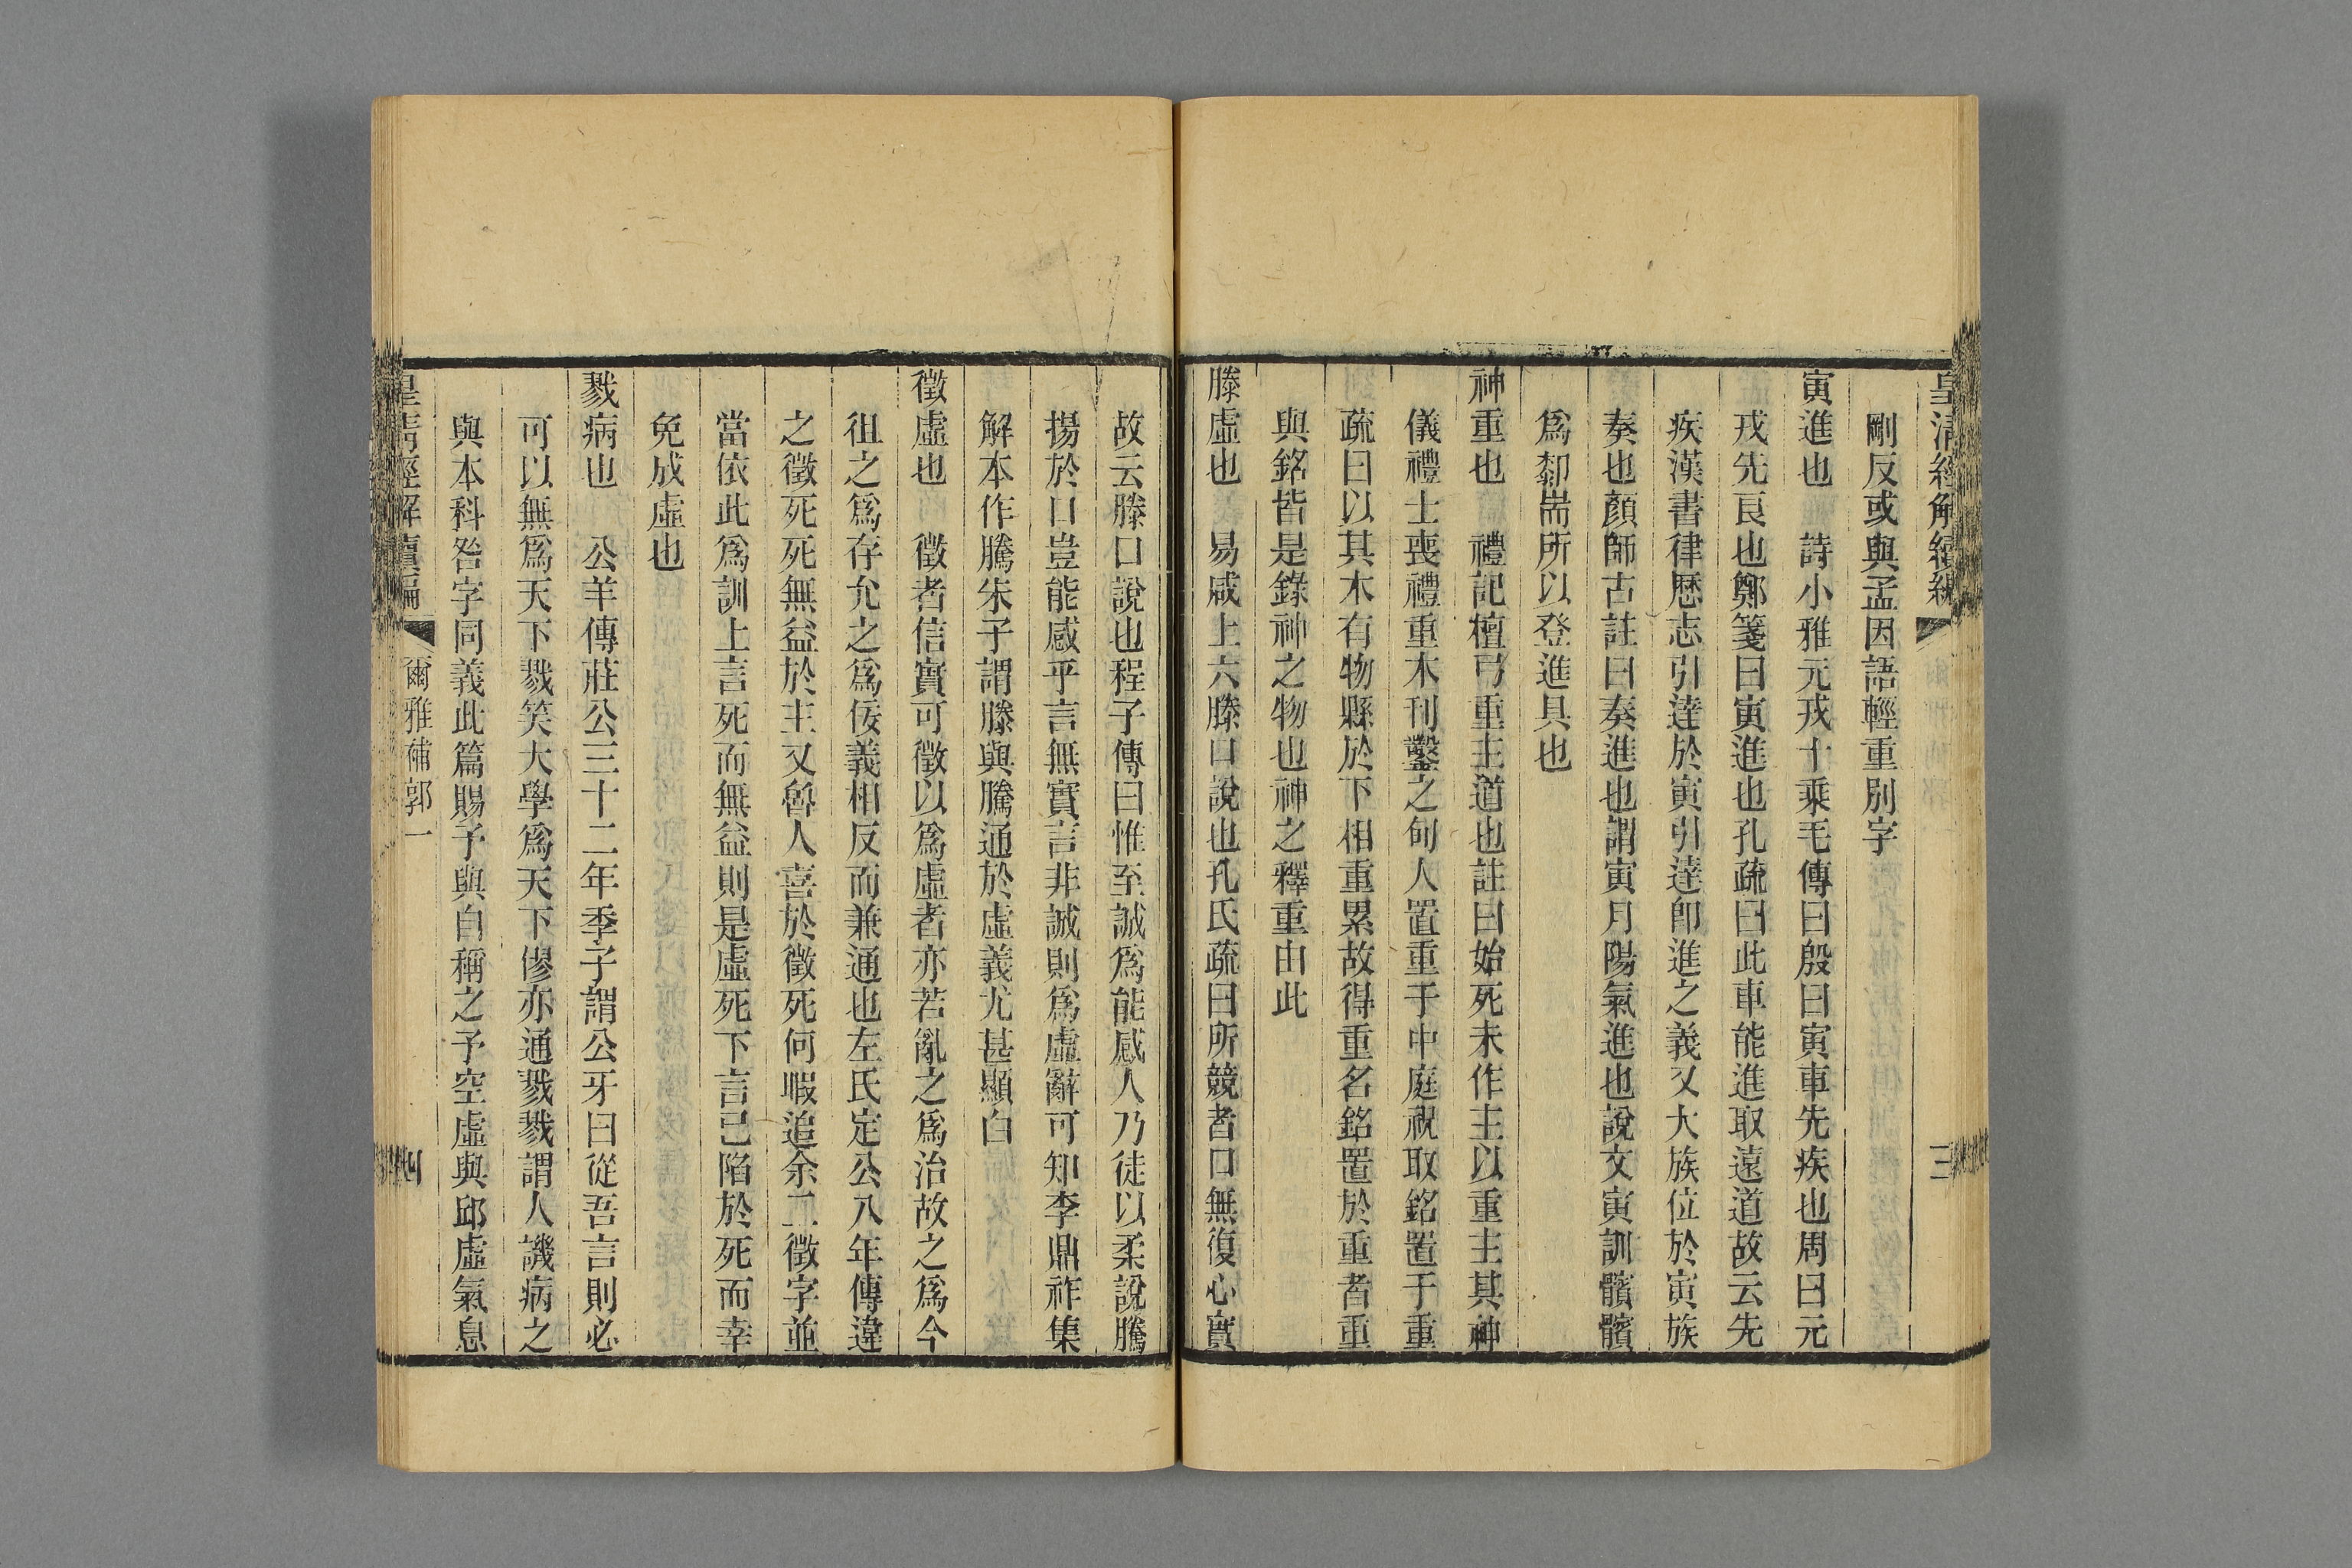 皇清經解續編
三
剛反或與孟因語輕重別字
寅進也　詩小雅元戎十乘毛傳曰殷曰寅車先疾也周曰元
戎先良也鄭箋曰寅進也孔疏曰此車能進取遠道故云先
疾漢書律歷志引達於寅引達卽進之義又大族位於寅族
奏也顏師古註曰奏進也謂寅月陽氣進也說文寅訓髕髕
爲郗耑所以登進具也
神重也　禮記檀弓重主道也註曰始死未作主以重主其神
儀禮士喪禮重木刊鑿之甸人置重于中庭祝取銘置于重
疏曰以其木有物縣於下相重累故得重名銘置於重者重
與銘皆是錄神之物也神之釋重由此
滕虛也　易咸上六滕口說也孔氏疏曰所競者口無復心實
故云滕口說也程子傳曰惟至誠爲能感人乃徒以柔說騰
揚於口豈能感乎言無實言非誠則爲虛辭可知李鼎祚集
解本作騰朱子謂滕與騰通於虛義尤甚顯白
徵虛也　徵者信實可徵以爲虛者亦若亂之爲治故之爲今
徂之爲存允之爲佞義相反而兼通也左氏定公八年傳違
之徵死死無益於主又魯人喜於徵死何暇追余二徵字並
當依此爲訓上言死而無益則是虛死下言已陷於死而幸
免成虛也
戮病也　公羊傳莊公三十二年季子謂公牙曰從吾言則必
可以無爲天下戮笑大學爲天下僇亦通戮戮謂人譏病之
與本科咎字同義此篇賜予與自稱之予空虛與邱虛氣息
皇清經解續編
爾雅補郭一
四